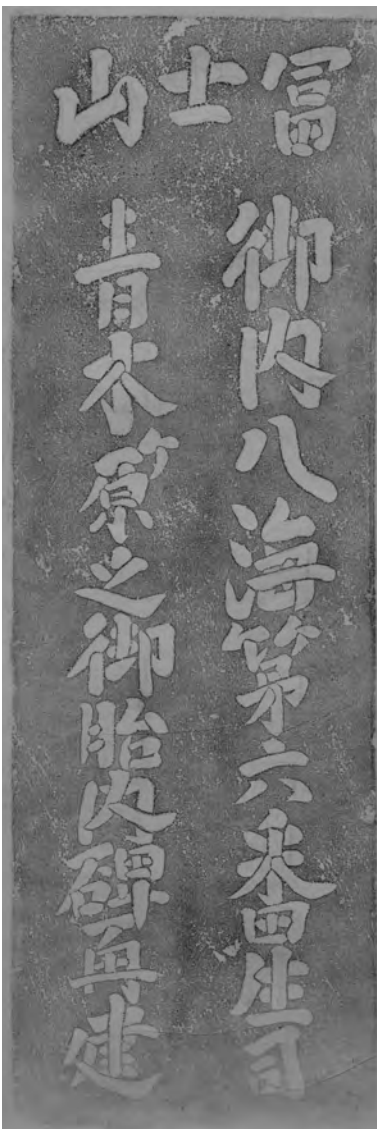 冨士山
御内八海第六番
青木ケ原之御胎内碑再建